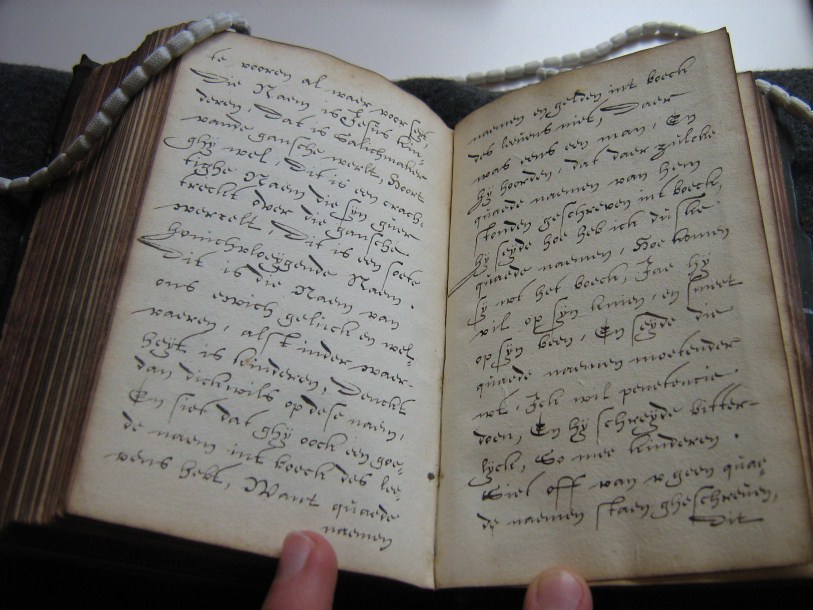 te vooren al waer voor seij,
Die Naem is Jesus kin-
deren, Dat is Salichmaker
vande gansche werlt, Hoort
ghij wel, Dit is een crach-
tighe Naem die sijn gaer
treckt over die gansche
werrelt, Dit is een soete
honichvloeijgende Naem.
Dit is die Naem van
ons ewich geluck en wel-
vaeren, alst inder waer-
heijt is kinderen, Denckt
dan dickwils op dese naem,
En siet dat ghij oock een goe-
de naem int boeck des lee-
vens hebt, Want quaede
naemen
naemen en gelden int boeck
des levens niet, Daer
was eens een man, En
hij hoorden, dat daer zulcke
quaede naemen van hem
stonden geschreven int boeck,
hij seijde hoe heb ick duske
quaede naemen, Hoe komen
sij wt het boeck, Jae hij
viel op sijn knien, en smeet
op sijn been, En seijde die
quaede naemen moetender
wt, Ick wil penetencie.
doen, En hij schreijde bitter-
lyck, So mee kinderen.
Siet off van v geen quae-
de naemen staen gheschreven,
Dit